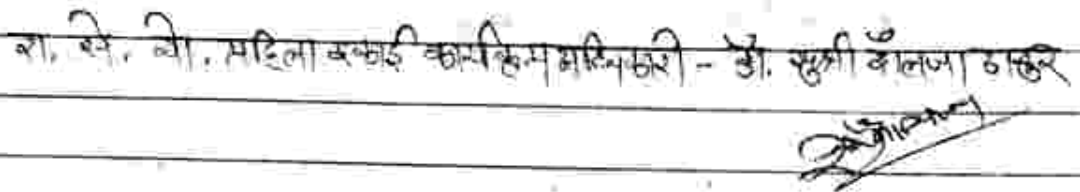 रा. से. यो. महिला इकाई कार्यक्रम अधिकारी - डॉ. सुश्री शैलजा ठाकुर